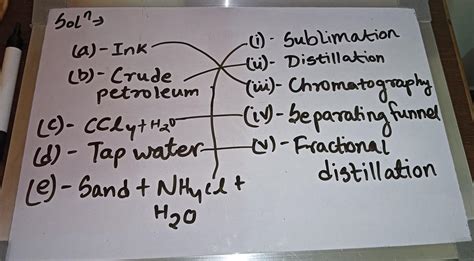 Solⁿ→
(a)- Ink
(b)- Crude
petroleum
(c)- CCl4+H2O
(d)- Tap water
(e)- Sand + NH4Cl +
H2O
(i)- Sublimation
(ii)- Distillation
(iii)- Chromatography
(iv)- Separating funnel
(v)- Fractional
distillation